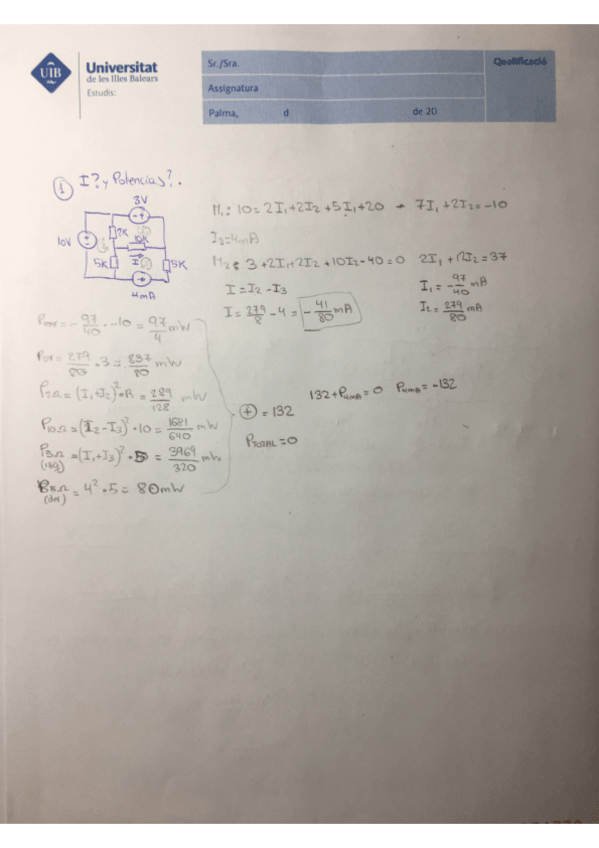 UIB
Universitat
de les Illes Balears
Estudis:
Sr./Sra.
Qualificació
Assignatura
Palma, d de 20
1 I? y Potencias?.
3V
10V
2K
10K
5K
I
5K
4mA
M1: 10 = 2I1+2I2+5I1+20 → 7I1+2I2=-10
I3=4mA
M2: 3+2I1+2I2+10I2-40=0 2I1+12I2=37
I = I2 - I3
I1 = -97/40 mA
I = 279/8 - 4 = -41/80 mA
I2 = 279/80
P10V = -97/40 · -10 = 97/4 mW
= 279/80 · 3 = 837/80 mW
P2Ω = (I1+I2)²·R = 289/128 mW
P10Ω = (I2-I3)²·10 = 1681/640 mW
P5Ω (izq) = (I1+I3)²·5 = 3969/320 mW
P5Ω (der) = 4²·5 = 80mW
+ = 132
132+P4mA=0 P4mA=-132
PTOTAL=0